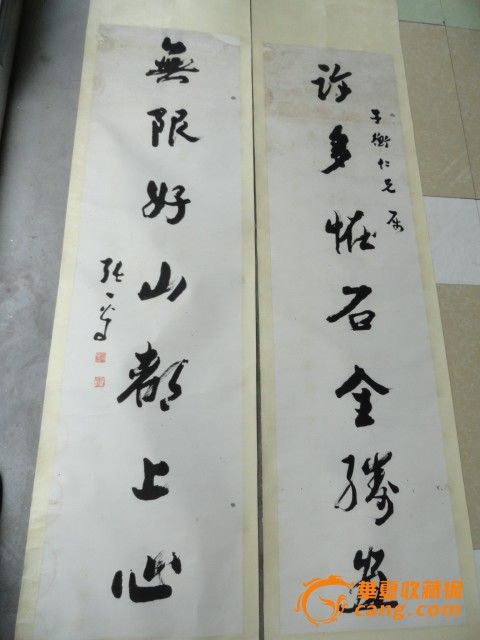 許多恠石全勝
子衡仁兄屬
無限好山都上心
張一
華夏收藏網
cang.com